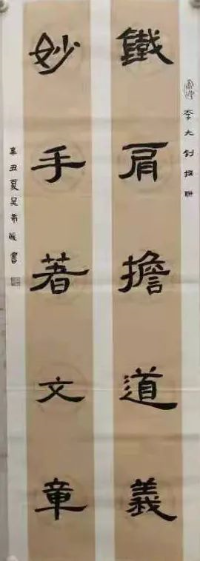 李大釗撰聯
鐵肩擔道義
妙手著文章
辛丑夏吴希書